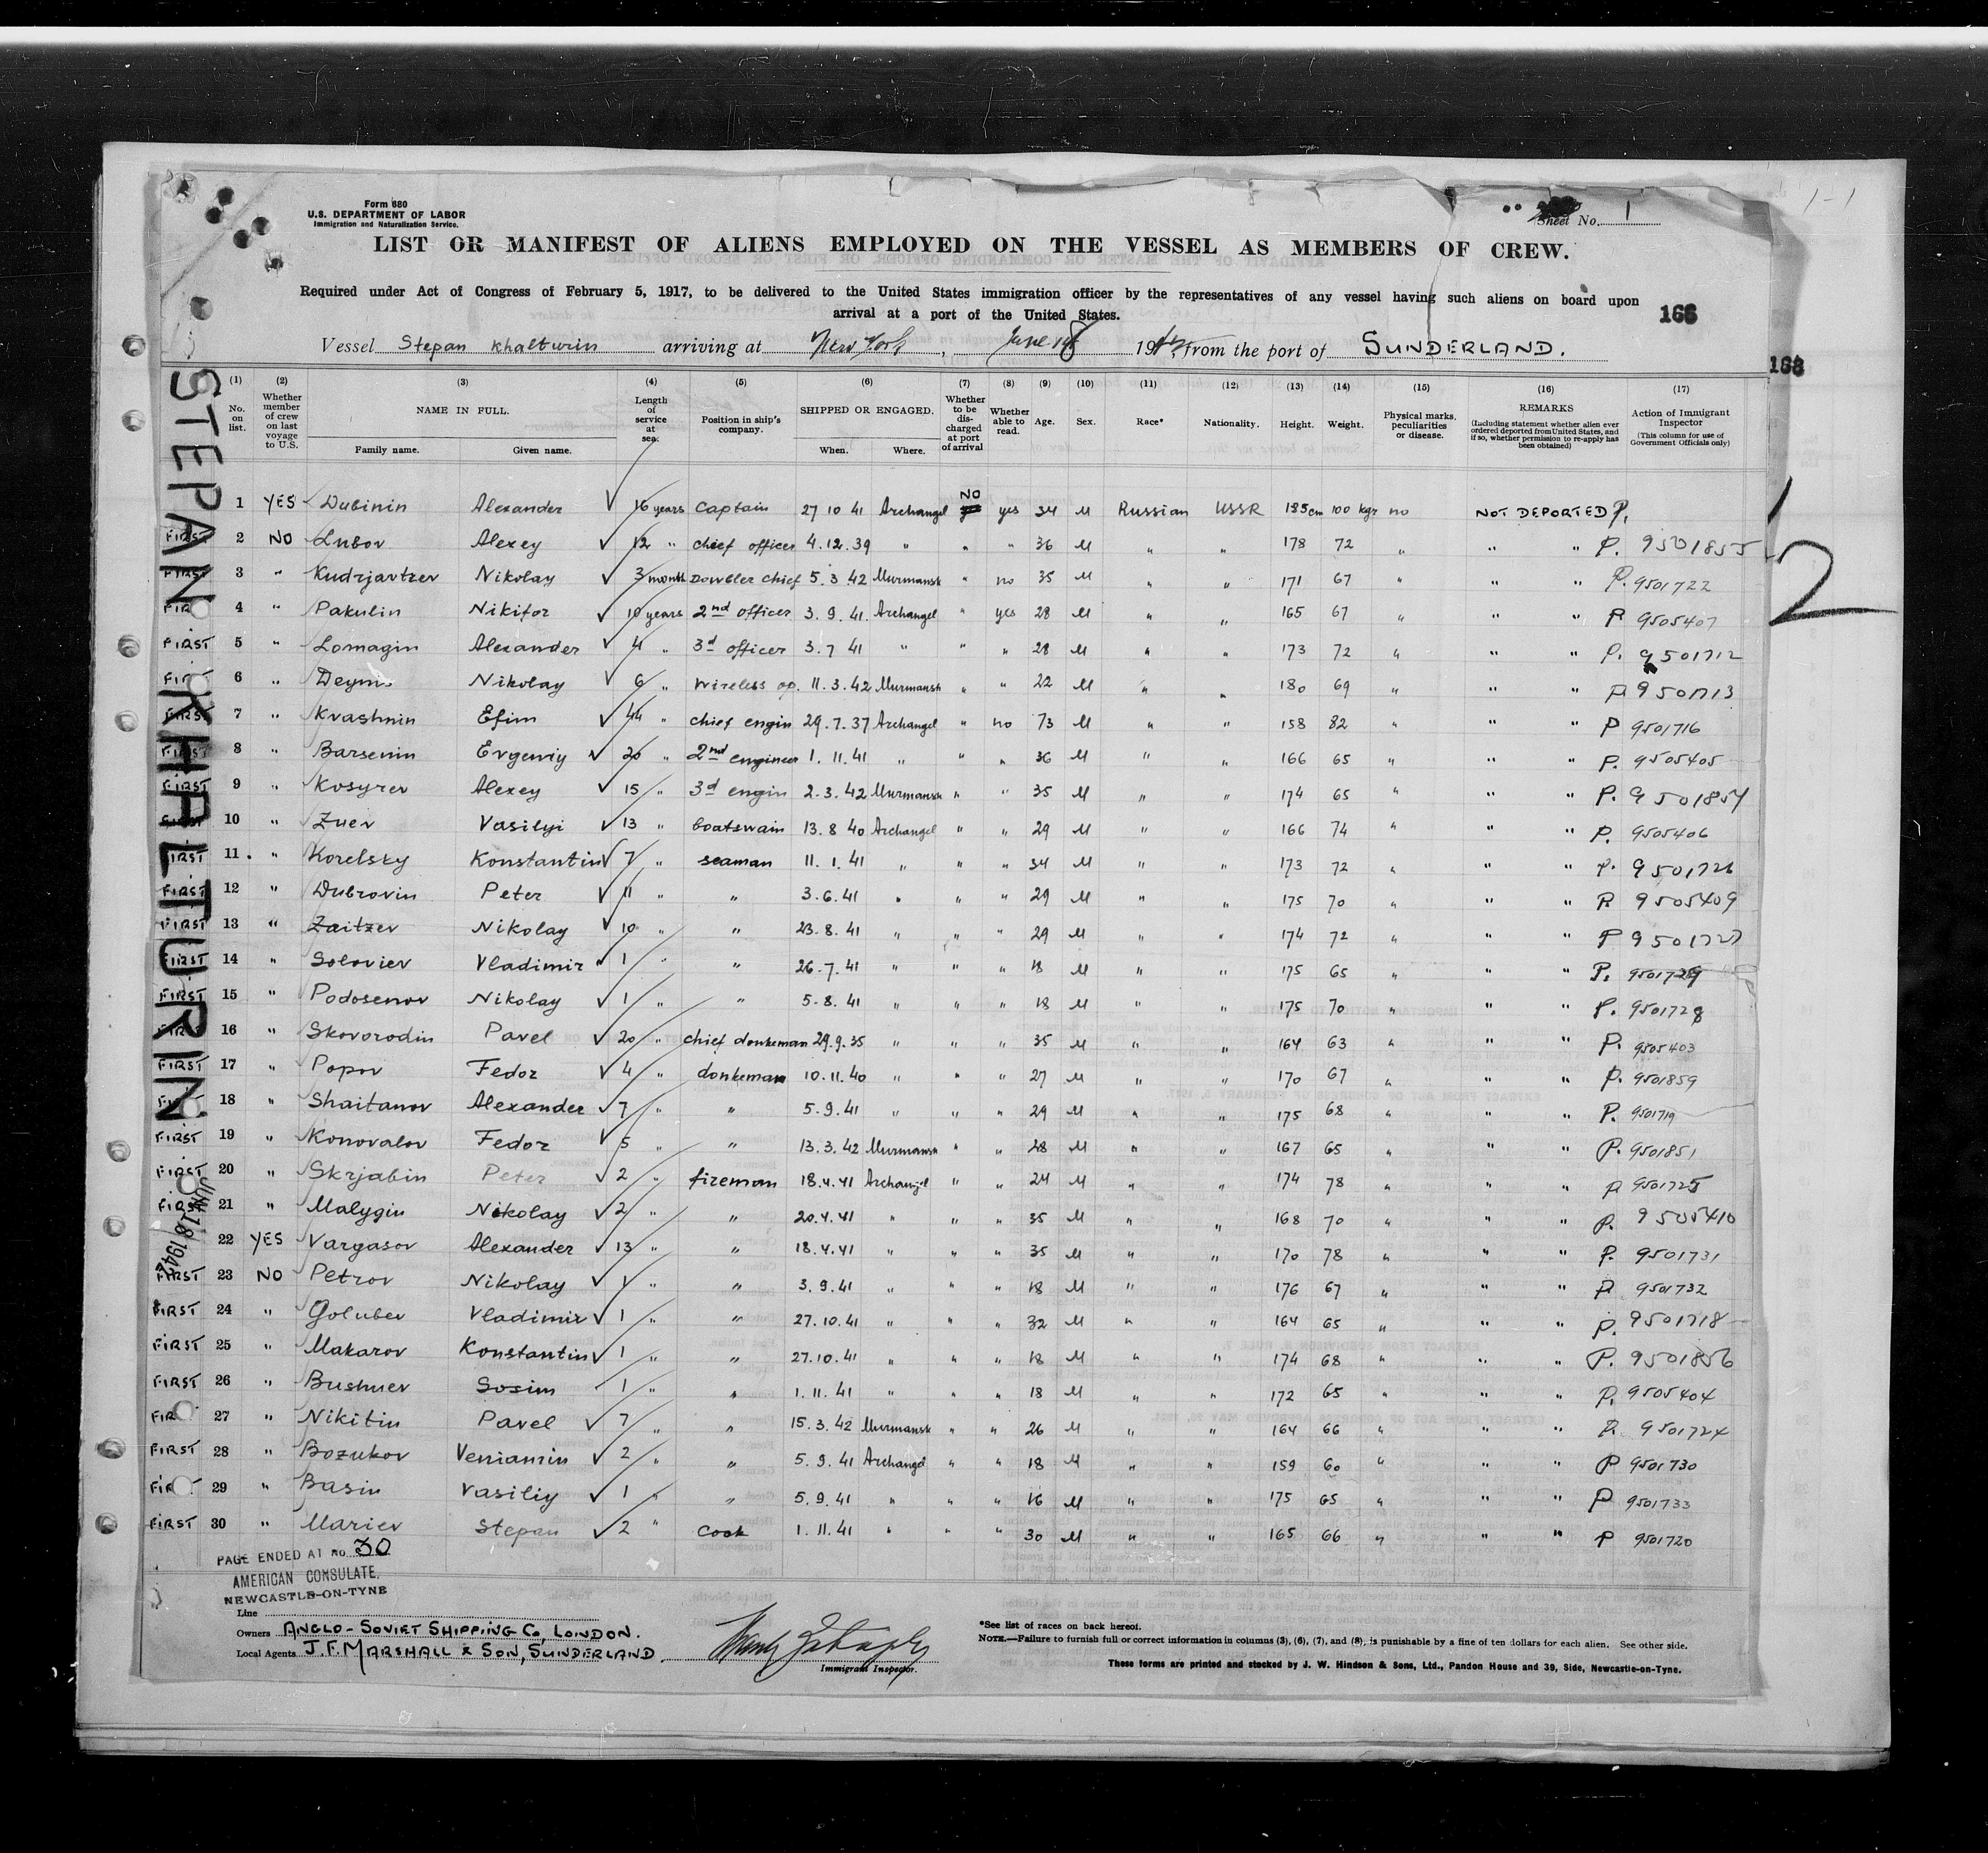 Form 680
U.S. DEPARTMENT OF LABOR
Immigration and Naturalization Service.
Sheet No. 1
LIST OR MANIFEST OF ALIENS EMPLOYED ON THE VESSEL AS MEMBERS OF CREW.
Required under Act of Congress of February 5, 1917, to be delivered to the United States immigration officer by the representatives of any vessel having such aliens on board upon
arrival at a port of the United States.
166
Vessel Stepan Khalturin arriving at New York, June 18 1942, from the port of SUNDERLAND.
168
STEPAN KHALTURIN
JUN 18 1942
(1) No. on list. (2) Whether member of crew on last voyage to U.S. (3) NAME IN FULL. Family name. Given name. (4) Length of service at sea. (5) Position in ship's company. (6) SHIPPED OR ENGAGED. When. Where. (7) Whether to be discharged at port of arrival (8) Whether able to read. (9) Age. (10) Sex. (11) Race* (12) Nationality. (13) Height. (14) Weight. (15) Physical marks, peculiarities or disease. (16) REMARKS (Including statement whether alien ever ordered deported from United States, and if so, whether permission to re-apply has been obtained) (17) Action of Immigrant Inspector (This column for use of Government Officials only)
1 YES Dubinin Alexander 16 years Captain 27 10 41 Archangel NO yes 34 M Russian USSR 185 cm 100 kgr no NOT DEPORTED P. 1
FIRST 2 NO Lubov Alexey 12 " chief officer 4.12.39 " " " 36 M " " 178 72 " " " P. 9501855 2
FIRST 3 " Kudrjavtzev Nikolay 3 month Dowbler chief 5.3.42 Murmansk " no 35 M " " 171 67 " " " P. 9501722
FIRST 4 " Pakulin Nikifor 10 years 2nd officer 3.9.41. Archangel " yes 28 M " " 165 67 " " " P 9505407
FIRST 5 " Lomagin Alexander 4 " 3d officer 3.7 41 " " " 28 M " " 173 72 " " " P. 9501712
FIRST 6 " Deynis Nikolay 6 " Wireless op. 11.3.42 Murmansk " " 22 M " " 180 69 " " " P 9501713
FIRST 7 " Kvashnin Efim 44 " chief engin 29.7.37 Archangel " no 73 M " " 158 82 " " " P 9501716
FIRST 8 " Barsenin Evgeniy 20 " 2nd engineer 1.11.41 " " " 36 M " " 166 65 " " " P. 9505405
FIRST 9 " Kosyrev Alexey 15 " 3d engin 2.3.42 Murmansk " " 35 M " " 174 65 " " " P. 9501857
FIRST 10 " Zuev Vasilyi 13 " boatswain 13.8 40 Archangel " " 29 M " " 166 74 " " " P. 9505406
FIRST 11. " Korelsky Konstantin 7 " seaman 11.1.41 " " " 34 M " " 173 72 " " " P. 9501726
FIRST 12 " Dubrovin Peter 11 " " 3.6.41 " " " 29 M " " 175 70 " " " P 9505409
FIRST 13 " Zaitzev Nikolay 10 " " 23.8.41 " " " 29 M " " 174 72 " " " P 9501727
FIRST 14 " Soloviev Vladimir 1 " " 26.7.41 " " " 18 M " " 175 65 " " " P. 9501729
FIRST 15 " Podosenov Nikolay 1 " " 5.8.41 " " " 18 M " " 175 70 " " " P. 9501728
FIRST 16 " Skovorodin Pavel 20 " chief donkeman 29.9.35 " " " 35 M " " 164 63 " " " P. 9505403
FIRST 17 " Popov Fedor 4 " donkeman 10.11.40 " " " 27 M " " 170 67 " " " P. 9501859
FIRST 18 " Shaitanov Alexander 7 " " 5.9.41 " " " 29 M " " 175 68 " " " P. 9501719
FIRST 19 " Konovalov Fedor 5 " " 13.3.42 Murmansk " " 28 M " " 167 65 " " " P. 9501851
FIRST 20 " Skrjabin Peter 2 " fireman 18.4.41 Archangel " " 24 M " " 174 78 " " " P 9501725
FIRST 21 " Malygin Nikolay 2 " " 20.4.41 " " " 35 M " " 168 70 " " " P. 9505410
22 YES Vargasov Alexander 13 " " 18.4.41 " " " 35 M " " 170 78 " " " P. 9501731
FIRST 23 NO Petrov Nikolay 1 " " 3.9.41 " " " 18 M " " 176 67 " " " P 9501732
FIRST 24 " Golubev Vladimir 1 " " 27.10.41 " " " 32 M " " 164 65 " " " P. 9501718
FIRST 25 " Makarov Konstantin 1 " " 27.10.41 " " " 18 M " " 174 68 " " " P. 9501856
FIRST 26 " Bushuev Sosim 1 " " 1.11.41 " " " 18 M " " 172 65 " " " P. 9505404
FIRST 27 " Nikitin Pavel 7 " " 15.3.42 Murmansk " " 26 M " " 164 66 " " " P. 9501724
FIRST 28 " Bozukov Veniamin 2 " " 5.9.41 Archangel " " 18 M " " 159 60 " " " P 9501730
FIRST 29 " Basin Vasiliy 1 " " 5.9.41 " " " 16 M " " 175 65 " " " P 9501733
FIRST 30 " Mariev Stepan 2 " Cook 1.11.41 " " " 30 M " " 165 66 " " " P 9501720
PAGE ENDED AT No. 30
AMERICAN CONSULATE.
NEWCASTLE-ON-TYNE
Line
Owners ANGLO-SOVIET SHIPPING Co, LONDON.
Local Agents J.F. MARSHALL & SON, SUNDERLAND.
Immigrant Inspector.
*See list of races on back hereof.
NOTE.—Failure to furnish full or correct information in columns (3), (6), (7), and (8), is punishable by a fine of ten dollars for each alien. See other side.
These forms are printed and stocked by J. W. Hindson & Sons, Ltd., Pandon House and 39, Side, Newcastle-on-Tyne.